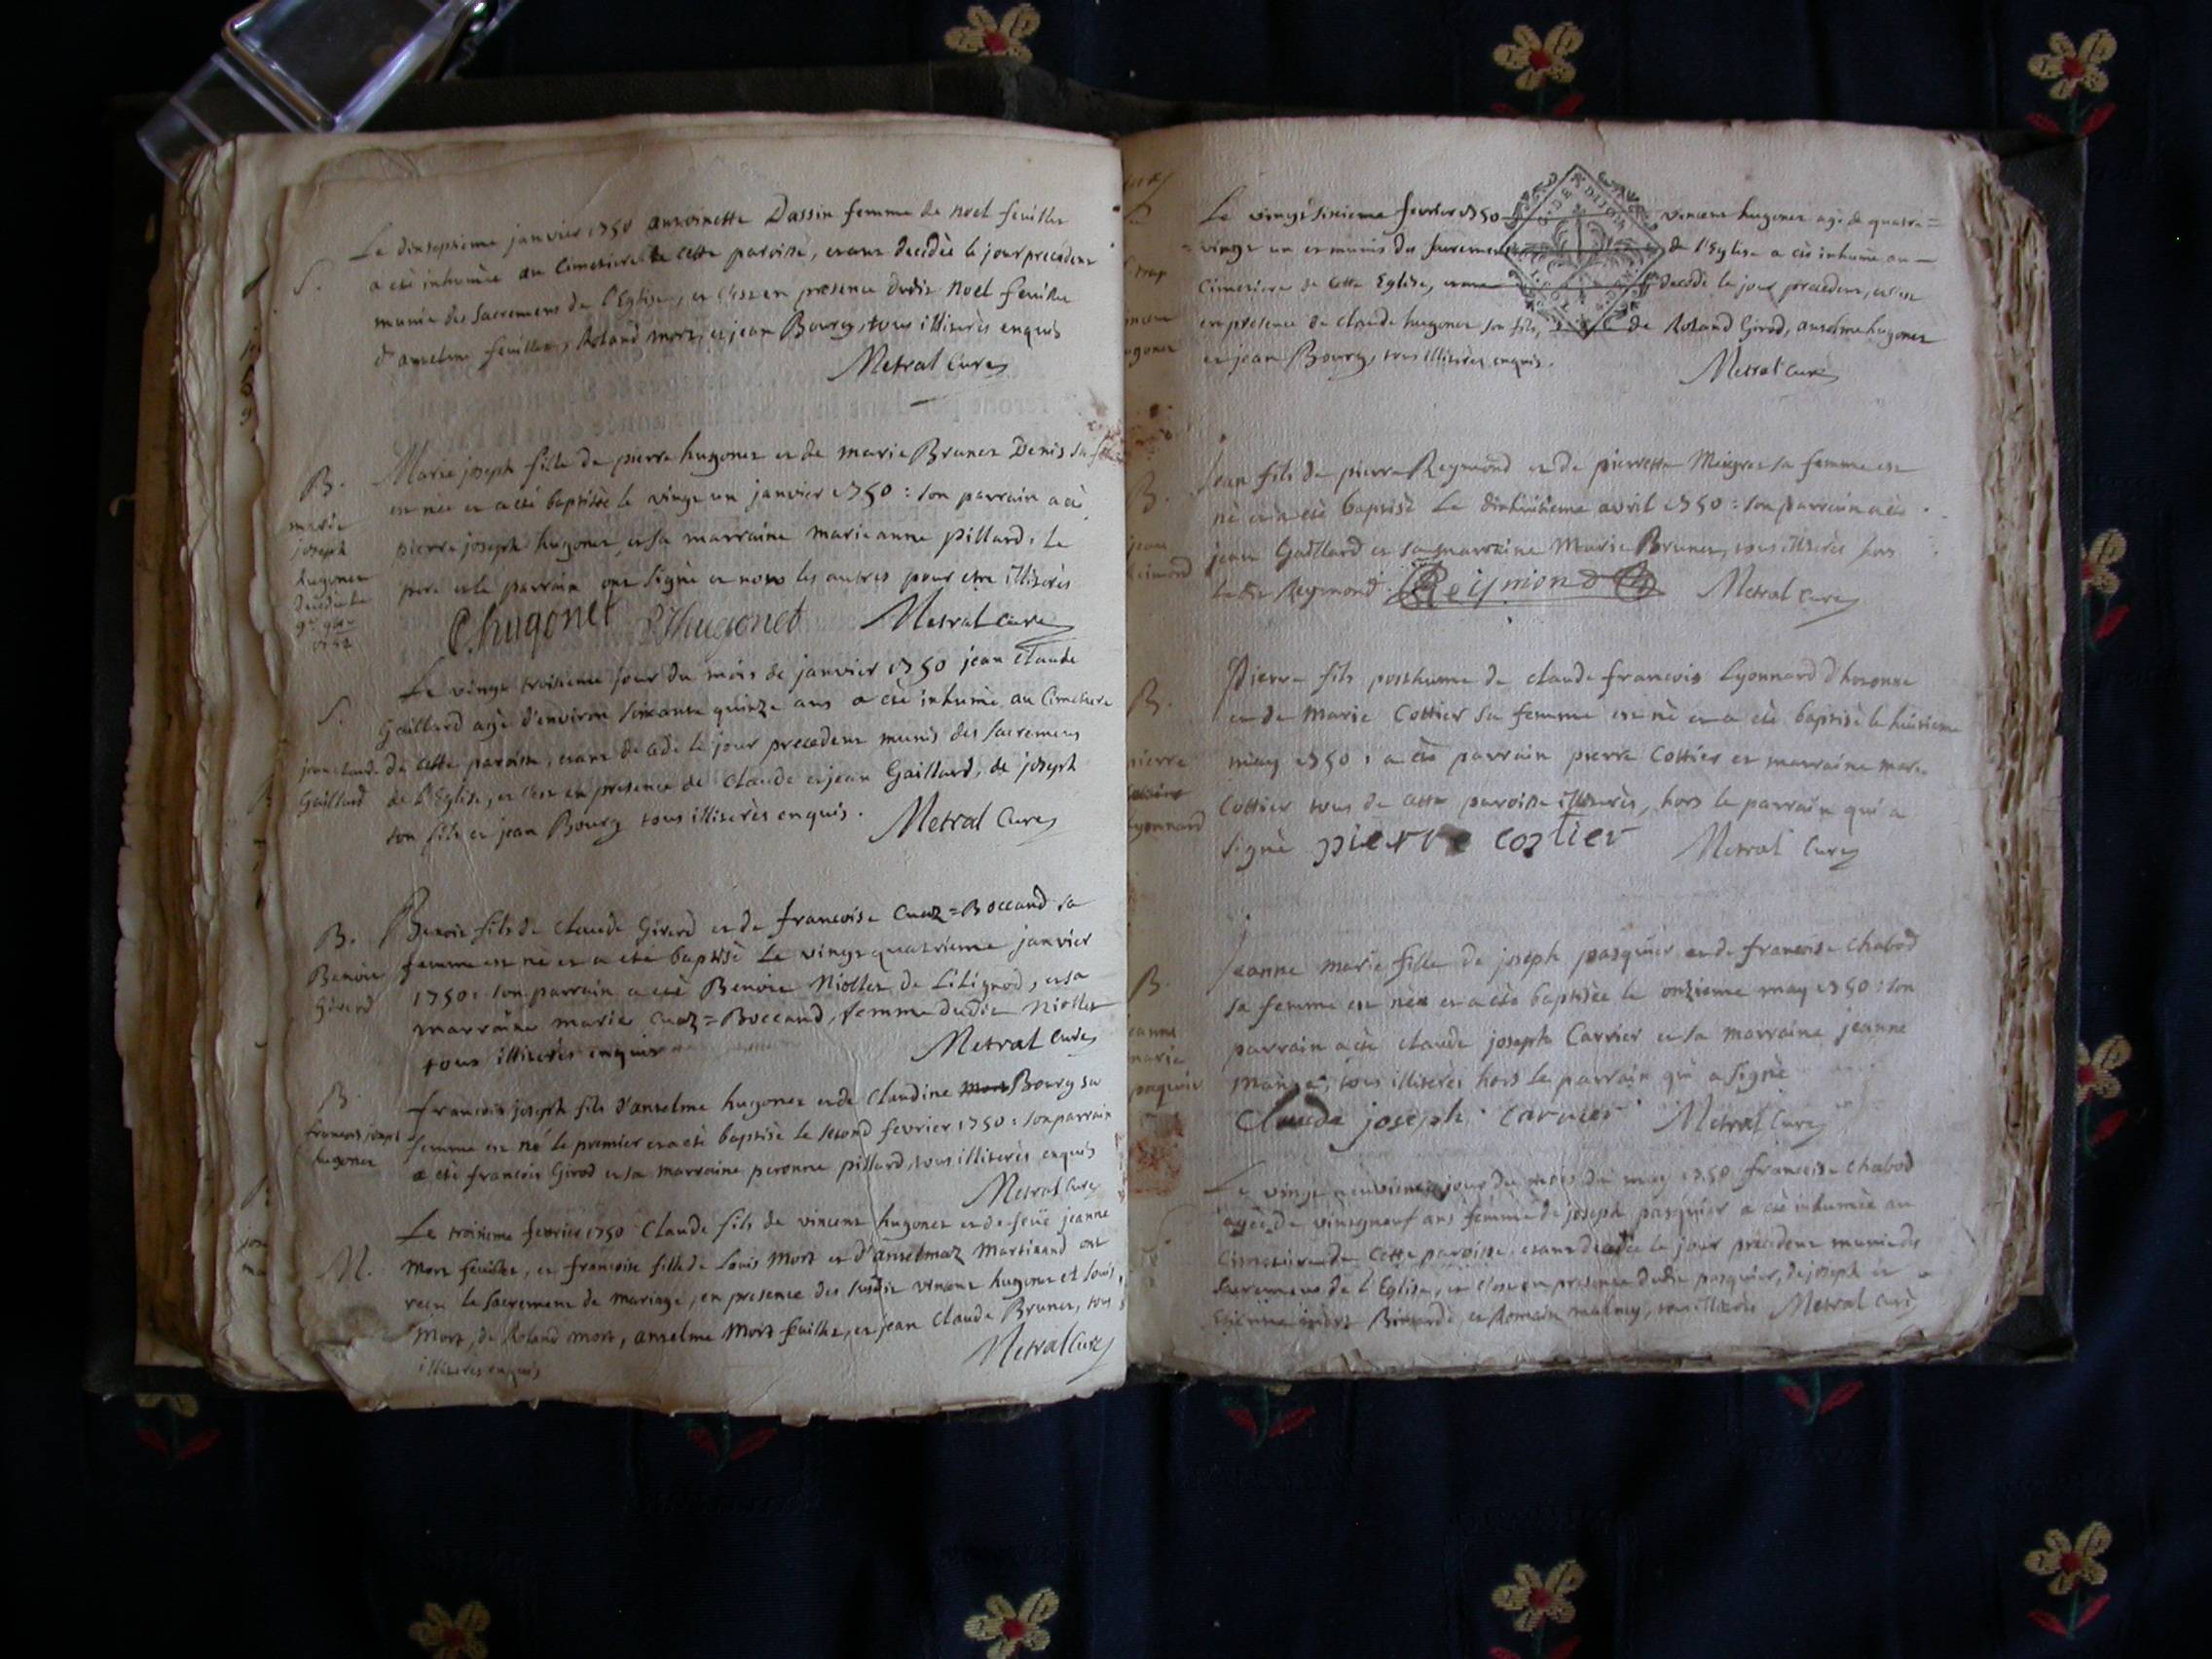 Le dixseptieme janvier 1750 antoinette Dassin femme de noel feuillet
S.
a eté inhumée au Cimetiere de cette paroisse, etant decedée le jour precedent
munie des Sacremens de l'Eglise, et c'est en presence dudit Noel feuillet
d'anselme feuillet, Roland mort, et jean Bourg, tous illiterès enquis
Metral Curé
B.
Marie joseph fille de pierre hugonet et de marie Brunet Denis sa
est née et a eté baptisée le vingt un janvier 1750 : son parrain a eté
marie
joseph
hugonet
pierre joseph hugonet et sa marraine marie anne pillard, le
pere et le parrain ont signé et non les autres pour etre illiterès
C. hugonet P. J. hugonet Metral Curé
Le vingt troisieme jour du mois de janvier 1750 jean Claude
S.
Gaillard agé d'environ soixante quinze ans a eté inhumé au Cimetiere
jean claude
Gaillard
de cette paroisse, etant decedé le jour precedent munis des Sacremens
de l'Eglise, et c'est en presence de Claude et jean Gaillard, de joseph
son fils et jean Bourg tous illiterès enquis.
Metral Curé
B.
Benoit
Girerd
Benoit fils de Claude Girerd et de francoise Cuaz=Boccand sa
femme est né et a eté baptisé le vingt quatrieme janvier
1750 : son parrain a eté Benoit Niollet de Lilignod, et sa
marraine marie Cuaz=Boccand, femme dudit Niollet
tous illiterès enquis
Metral Curé
B.
francois joseph
hugonet
francois joseph fils d'anselme hugonet et de Claudine Bourg sa
femme est né le premier et a eté baptisé le second fevrier 1750 : son parrain
a eté francois Girod et sa marraine peronne pillard, tous illiterès enquis
Metral Curé
Le troisieme fevrier 1750 Claude fils de vincent hugonet et de feuë jeanne
M.
Mort feuillet, et francoise fille de Louis Mort et d'anselmaz Martinand ont
recu le sacrement de mariage, en presence des susdit vincent hugonet et Louis
Mort, de Roland mort, anselme Mort feuillet, et jean Claude Brunet, tous
illiterès enquis
Metral Curé
Le vingt sixieme fevrier 1750 vincent hugonet agé de quatre=
=vingt un et munis des Sacremens de l'Eglise a eté inhumé au
Cimetiere de cette Eglise, decedé le jour precedent, c'est
en presence de claude hugonet son fils, de Roland Girod, anselme hugonet
et jean Bourg, tous illiterès enquis.
Metral Curé
B.
Jean fils de pierre Reymond et de pierrette Meigret sa femme est
né et a eté baptisé le dixhuitieme avril 1750 : son parrain a eté
jean Gaillard et sa marraine Marie Brunet, tous illiterès hors
ledit Reymond. Reymond Metral Curé
B.
Pierre fils posthume de claude francois Lyonnard d'hotonne
et de Marie Cottier sa femme est né et a eté baptisé le huitieme
may 1750 : a eté parrain pierre Cottier et marraine
Cottier tous de cette paroisse illiterès, hors le parrain qui a
signé pierre cotier Metral Curé
B.
Jeanne marie fille de joseph pasquier et de francoise Chabod
sa femme est née et a eté baptisée le onzieme may 1750 : son
parrain a eté claude joseph Carrier et sa marraine jeanne
tous illiterès hors le parrain qui a signé
Claude joseph carrier Metral Curé
Le vingt neuvieme jour du mois de may 1750 francoise Chabod
agée de vingtneuf ans femme de joseph pasquier a eté inhumée au
Cimetiere de cette paroisse, etant decedée le jour precedent munie des
Sacremens de l'Eglise, et c'est en presence dudit pasquier, de joseph et
et Romain tous illiterès Metral Curé